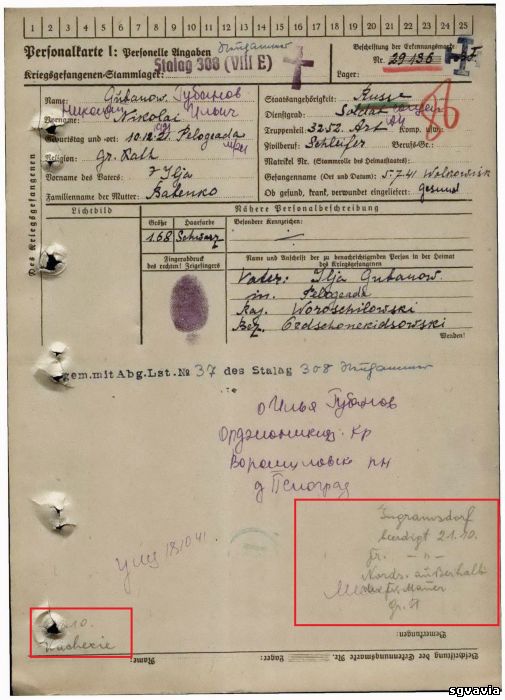 1 2 3 4 5 6 7 8 9 10 11 12 13 14 15 16 17 18 19 20 21 22 23 24 25
Personalkarte I: Personelle Angaben
Kriegsgefangenen-Stammlager: Stalag 308 (VIII E)
Beschriftung der Erkennungsmarke
Nr. 29136
Lager:
Des Kriegsgefangenen
Name: Gubanow Губанов
Vorname: Nikolai Ильич
Geburtstag und -ort: 10.12.21 Pelogeada
Religion: Gr. Kath
Vorname des Vaters: Ilja
Familienname der Mutter: Babenko
Staatsangehörigkeit: Russe
Dienstgrad: Soldat
Truppenteil: 3252. Art Komp. usw.:
Zivilberuf: Schleifer Berufs-Gr.:
Matrikel Nr. (Stammrolle des Heimatstaates):
Gefangennahme (Ort und Datum): 5.7.41 Wolkowisk
Ob gesund, krank, verwundet eingeliefert: gesund
86
Lichtbild
Nähere Personalbeschreibung
Größe Haarfarbe Besondere Kennzeichen:
1.68 Schwarz
Fingerabdruck
des rechten! Zeigefingers
Name und Anschrift der zu benachrichtigenden Person in der Heimat
des Kriegsgefangenen
Vater: Ilja Gubanow.
in. Pelogeada
Raj. Woroschilowski
Bez. Ordschonekidsowski
Wenden!
gem.mit Abg.Lst.№ 37 des Stalag 308
о Илья Губанов
Орджоникид. Кр
Ворошиловск рн
д
18.10.41.
Ingramsdorf
beerdigt 21.10.
Gr. - " -
Nords. außerhalb
Mauer
Gr. 17
10.
Kachexie
Bemerkungen:
Beschriftung der Erkennungsmarke Nr.
Lager:
Name:
sgvavia